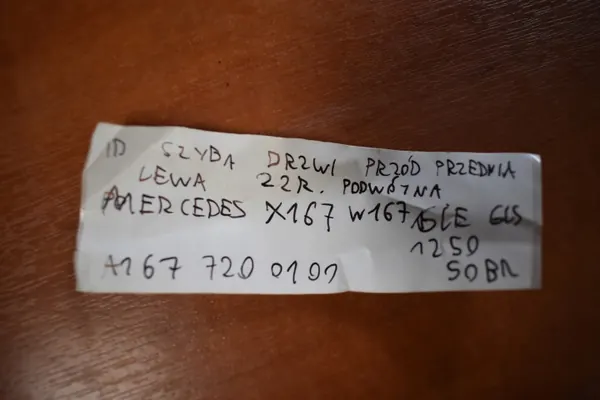 ID SZYBA DRZWI PRZÓD PRZEDNIA
LEWA 22R. PODWÓJNA
MERCEDES X167 W167 GLE GLS
1250
A167 720 0101 50BR